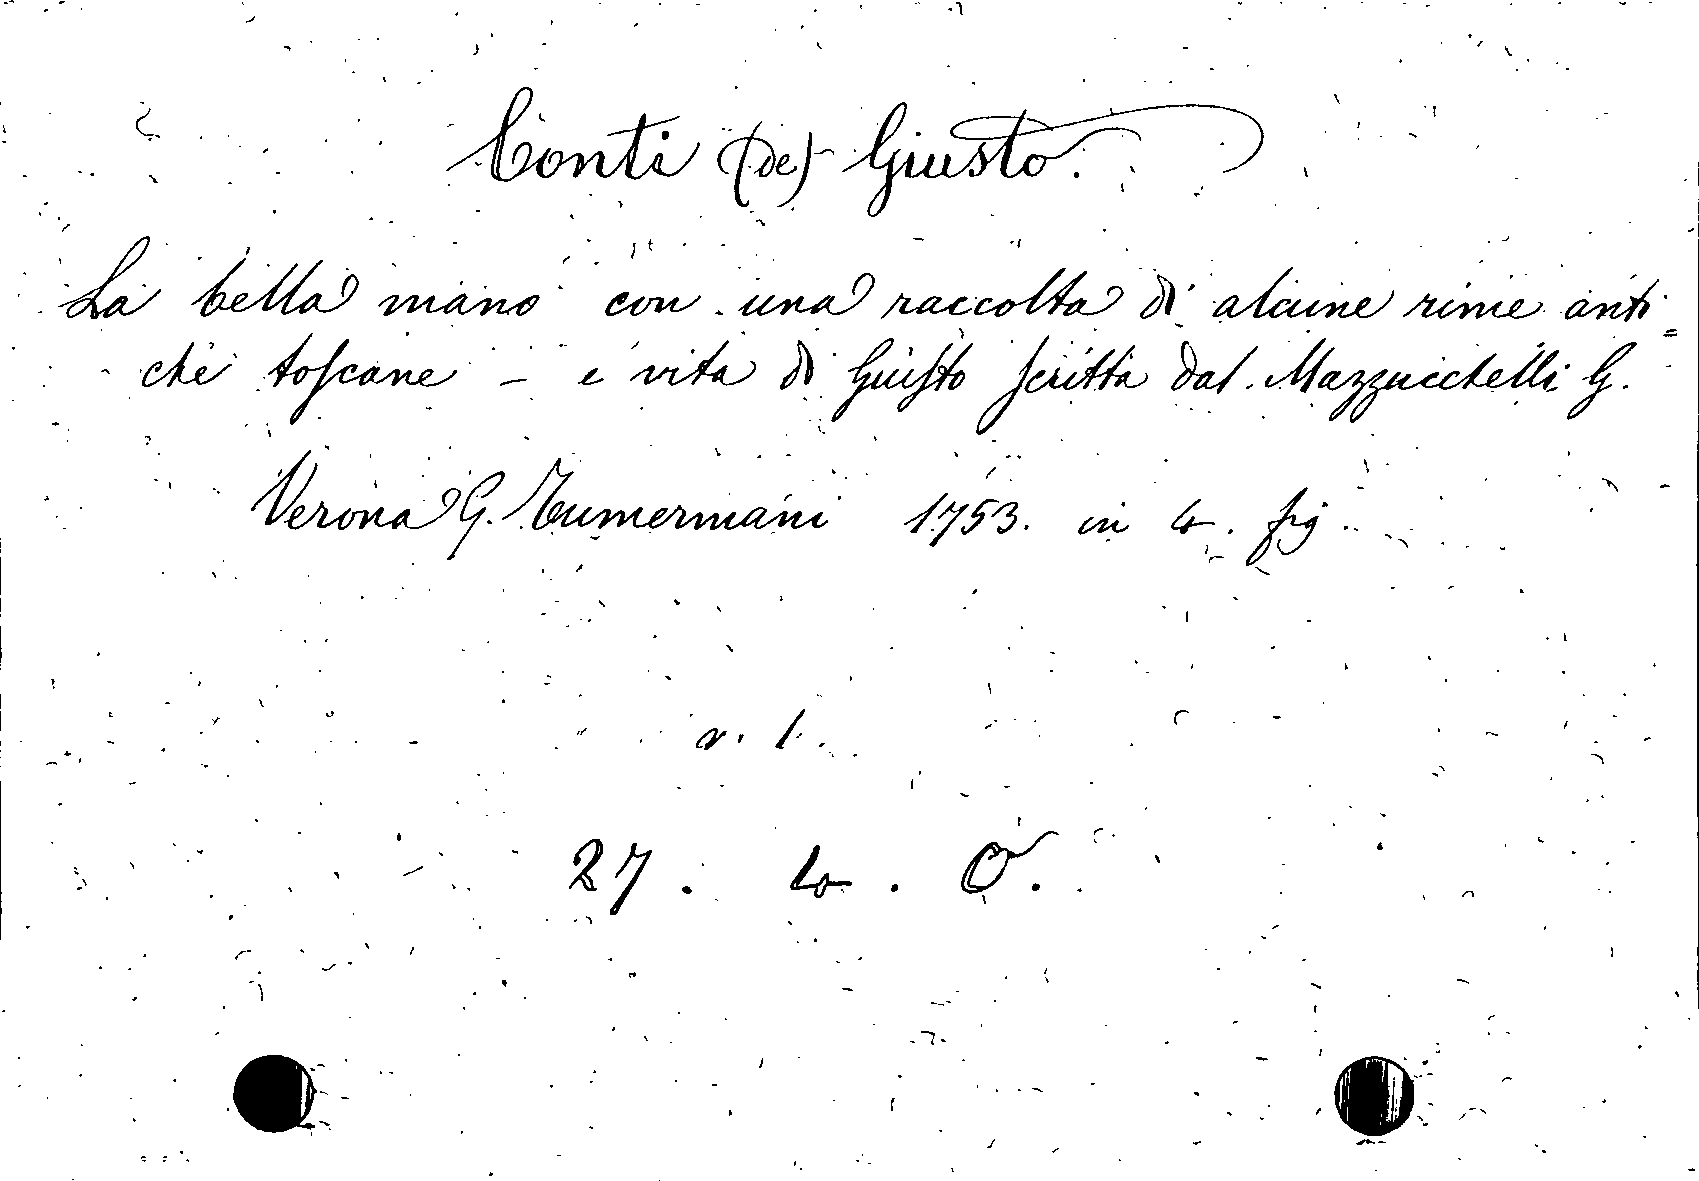 Conti (de) Giusto.
La bella mano con una raccolta di alcune rime anti=
che toscane – e vita di Giusto scritta dal Mazzucchelli G.
Verona G. Tumermani 1753. in 4. fig.
v. 1.
27. 4. O.